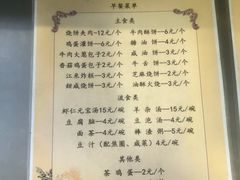 早餐菜单
主食类
烧饼夹肉—12元/个 牛肉酥饼—6元/个
鸡蛋灌饼—6元/个 糖油饼—4元/个
牛肉大葱包子—2元/个 咸油饼—3元/个
香菇鸡蛋包子—2元/个 牛舌饼—3元/个
江米炸糕—3元/个 芝麻烧饼—2元/个
甜咸烧饼—3元/个 油酥火烧—3元/个
流食类
虾仁元宝汤15元/碗 羊杂汤—15元/碗
豆腐脑—4元/碗 豆泡汤—4元/碗
面茶—4元/碗 棒渣粥—5元/碗
豆汁（配焦圈、咸菜）—4元/碗
其他类
茶鸡蛋—2元/个